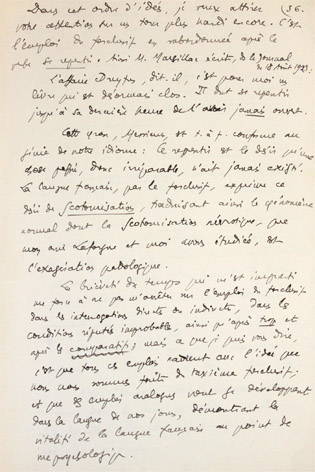 Dans cet ordre d'idées, je veux attirer (36.
votre attention sur un tour plus hardi encore. C'est
l'emploi du forclusif en subordonnée après le
verbe se repentir. Ainsi M. Marsillac écrit, de le Journal
du 18 Août 1923:
L'affaire Dreyfus, dit-il, c'est pour moi un
livre qui est désormais clos. Il dut se repentir
jusqu'à sa dernière heure de l'avoir jamais ouvert.
Cette, Messieurs, est conforme au
génie de notre idiome: Le repentir est le désir qu'une
chose passée, donc irréparable, n'ait jamais existé.
La langue française, par le forclusif, exprime ce
désir de scotomisation, traduisant ainsi le phénomène
normal dont la scotomisation névrotique, que
mon ami Laforgue et moi avons étudiée, est
l'exagération pathologique.
La brièveté du temps qui m'est imparti
me force à ne pas m'arrêter sur l'emploi du forclusif
dans les interrogations directes ou indirectes, dans les
conditions réputées improbables, ainsi qu'après trop et
après le comparatif; mais ce que je puis vous dire,
c'est que tous ces emplois cadrent avec l'idée que
nous nous sommes faite du taxième forclusif;
et que des emplois analogues vont se développant
dans la langue de nos jours, démontrant la
vitalité de la langue française au point de
vue psychologique.